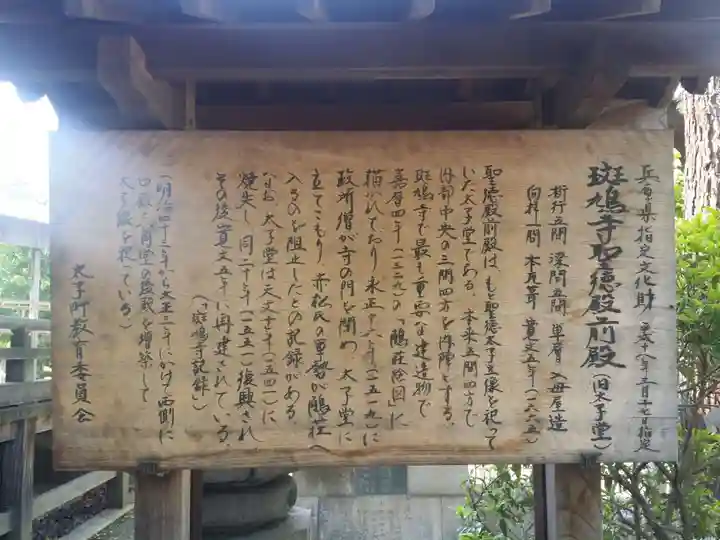 兵庫県指定文化財
斑鳩寺聖徳殿前殿（旧太子堂）
桁行五間 深間五間 単層 入母屋造
向拝一間 本瓦葺 寛文五年（一六六五）
聖徳殿前殿は、もと聖徳太子立像を祀って
いた太子堂である。本来五間四方で
内部中央の三間四方を内陣とする。
斑鳩寺で最も重要な建造物で
嘉暦四年（一三二九）の「鵤荘絵図」に
描かれており、永正十六年（一五一九）に
政所僧が寺の門を閉め、太子堂に
立てこもり、赤松氏の軍勢が鵤荘へ
入るのを阻止したとの記録がある。
なお、太子堂は天文十年（一五四一）に
焼失し、同二十年（一五五一）復興され、
その後、寛文五年に再建されている。
（「斑鳩寺記録」）
（明治四十三年から大正二年にかけ、西側に
口殿と前堂の後殿を増築して
太子殿を祀っている）
太子町教育委員会